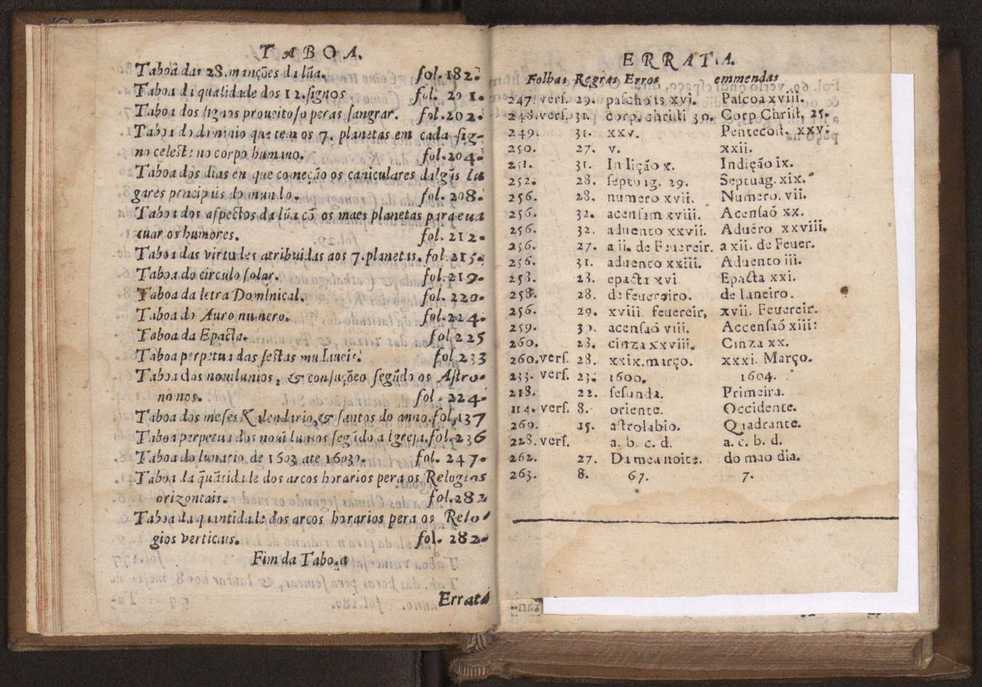 TABOA.
Taboa das 28. manções da lũa. fol. 182.
Taboa da qualidade dos 12. signos fol. 201.
Taboa dos signos proueitosos pera sangrar. fol. 202.
Taboa do dominio que tem os 7. planetas em cada sig-
no celeste no corpo humano. fol. 204.
Taboa dos dias en que começão os caniculares dalgũs lu
gares principais do mundo. fol. 208.
Taboa dos aspectos da lũa cõ os mais planetas para eua
cuar os humores. fol. 212.
Taboa das virtudes atribuidas aos 7. planetas. fol. 215.
Taboa do circulo solar. fol. 219.
Taboa da letra Dominical. fol. 220.
Taboa do Auro numero. fol. 224.
Taboa da Epacta. fol 225
Taboa perpetua das festas mudaueis. fol 233
Taboa das nouilunios, & conjunções segũdo os Astro-
nonos. fol. 224.
Taboa dos meses Kalendario, & santos do anno. fol, 137
Taboa perpetua dos noui lunios segũdo a Igreja. fol. 236
Taboa do lunario, de 1603 ate 1603o. fol. 247.
Taboa da quãtidade dos arcos horarios pera os Relogios
orizontais. fol. 282
Taboa da quantidade dos arcos horarios pera os Relo-
gios verticais. fol. 282.
Fim da Taboa
Errata
ERRATA.
Folhas Regras Erros emmendas
247. vers. 29. paschois xvi. Pascoa xviii.
248. vers. 31. corp. christi 30. Corp Christ. 25.
249. 31. xxv. Pentecost. xxv.
250. 27. v. xxii.
251. 31. Indição x. Indição ix.
252. 28. septuag. 29. Septuag. xix.
256. 28. numero xvii. Numero. vii.
256. 32. acensam xviii. Acensaó xx.
256. 32. aduento xxvii Aduéto xxviii.
256. 27. a ii. de Feuereir. a xii. de Feuer.
256. 31. aduento xxiii. Aduento iii.
258. 23. epacta xvi. Epacta xxi.
258. 28. de feuereiro. de Ianeiro.
256. 29. xviii. feuereir, xvii. Feuereir.
259. 30. acensaó viii. Accensaó xiii:
260. 23. cinza xxviii. Cinza xx.
260. vers. 28. xxix. março. xxxi. Março.
233. vers. 23. 1600. 1604.
218. 22. segunda. Primeira.
114. vers. 8. oriente. Occidente.
269. 15. astrolabio. Quadrante.
228. vers. a. b. c. d. a. c. b. d.
262. 27. Da mea noite. do mao dia.
263. 8. 67. 7.